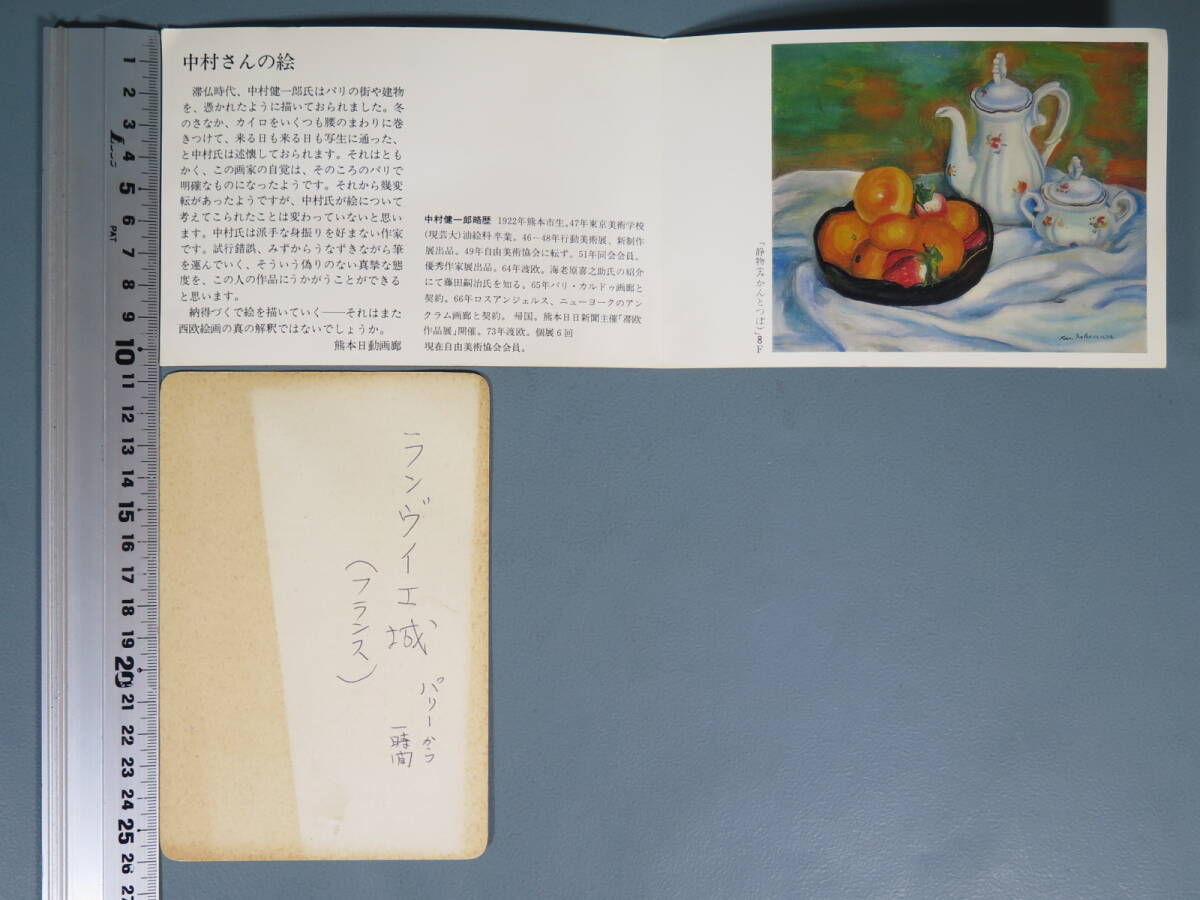 中村さんの絵
滞仏時代、中村健一郎氏はパリの街や建物
を、憑かれたように描いておられました。冬
のさなか、カイロをいくつも腰のまわりに巻
きつけて、来る日も来る日も写生に通った、
と中村氏は述懐しておられます。それはとも
かく、この画家の自覚は、そのころのパリで
明確なものになったようです。それから幾変
転があったようですが、中村氏が絵について
考えてこられたことは変わっていないと思い
ます。中村氏は派手な身振りを好まない作家
です。試行錯誤、みずからうなずきながら筆
を運んでいく、そういう偽りのない真摯な態
度を、この人の作品にうかがうことができる
と思います。
納得づくで絵を描いていく——それはまた
西欧絵画の真の解釈ではないでしょうか。
熊本日動画廊
中村健一郎略歴 1922年熊本市生。47年東京美術学校
(現芸大)油絵科卒業。46−48年行動美術展、新制作
展出品。49年自由美術協会に転ず。51年同会会員。
優秀作家展出品。64年渡欧。海老原喜之助氏の紹介
にて藤田嗣治氏を知る。65年パリ・カルドゥ画廊と
契約。66年ロスアンジェルス、ニューヨークのアン
クラム画廊と契約。 帰国。熊本日日新聞主催「滞欧
作品展」開催。73年渡欧。個展6回
現在自由美術協会会員。
『静物(みかんとつぼ)』8F
ランヴイエ城
(フランス)
パリーから
一時間
1
2
3
4
5
PAT
6
7
8
9
10
11
12
13
14
15
16
17
18
19
20
21
22
23
24
25
26
27